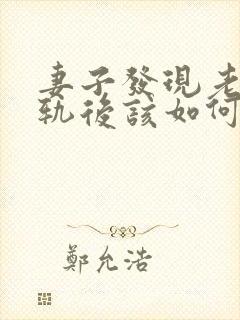 妻子發現老
軌後該如何
鄭允浩